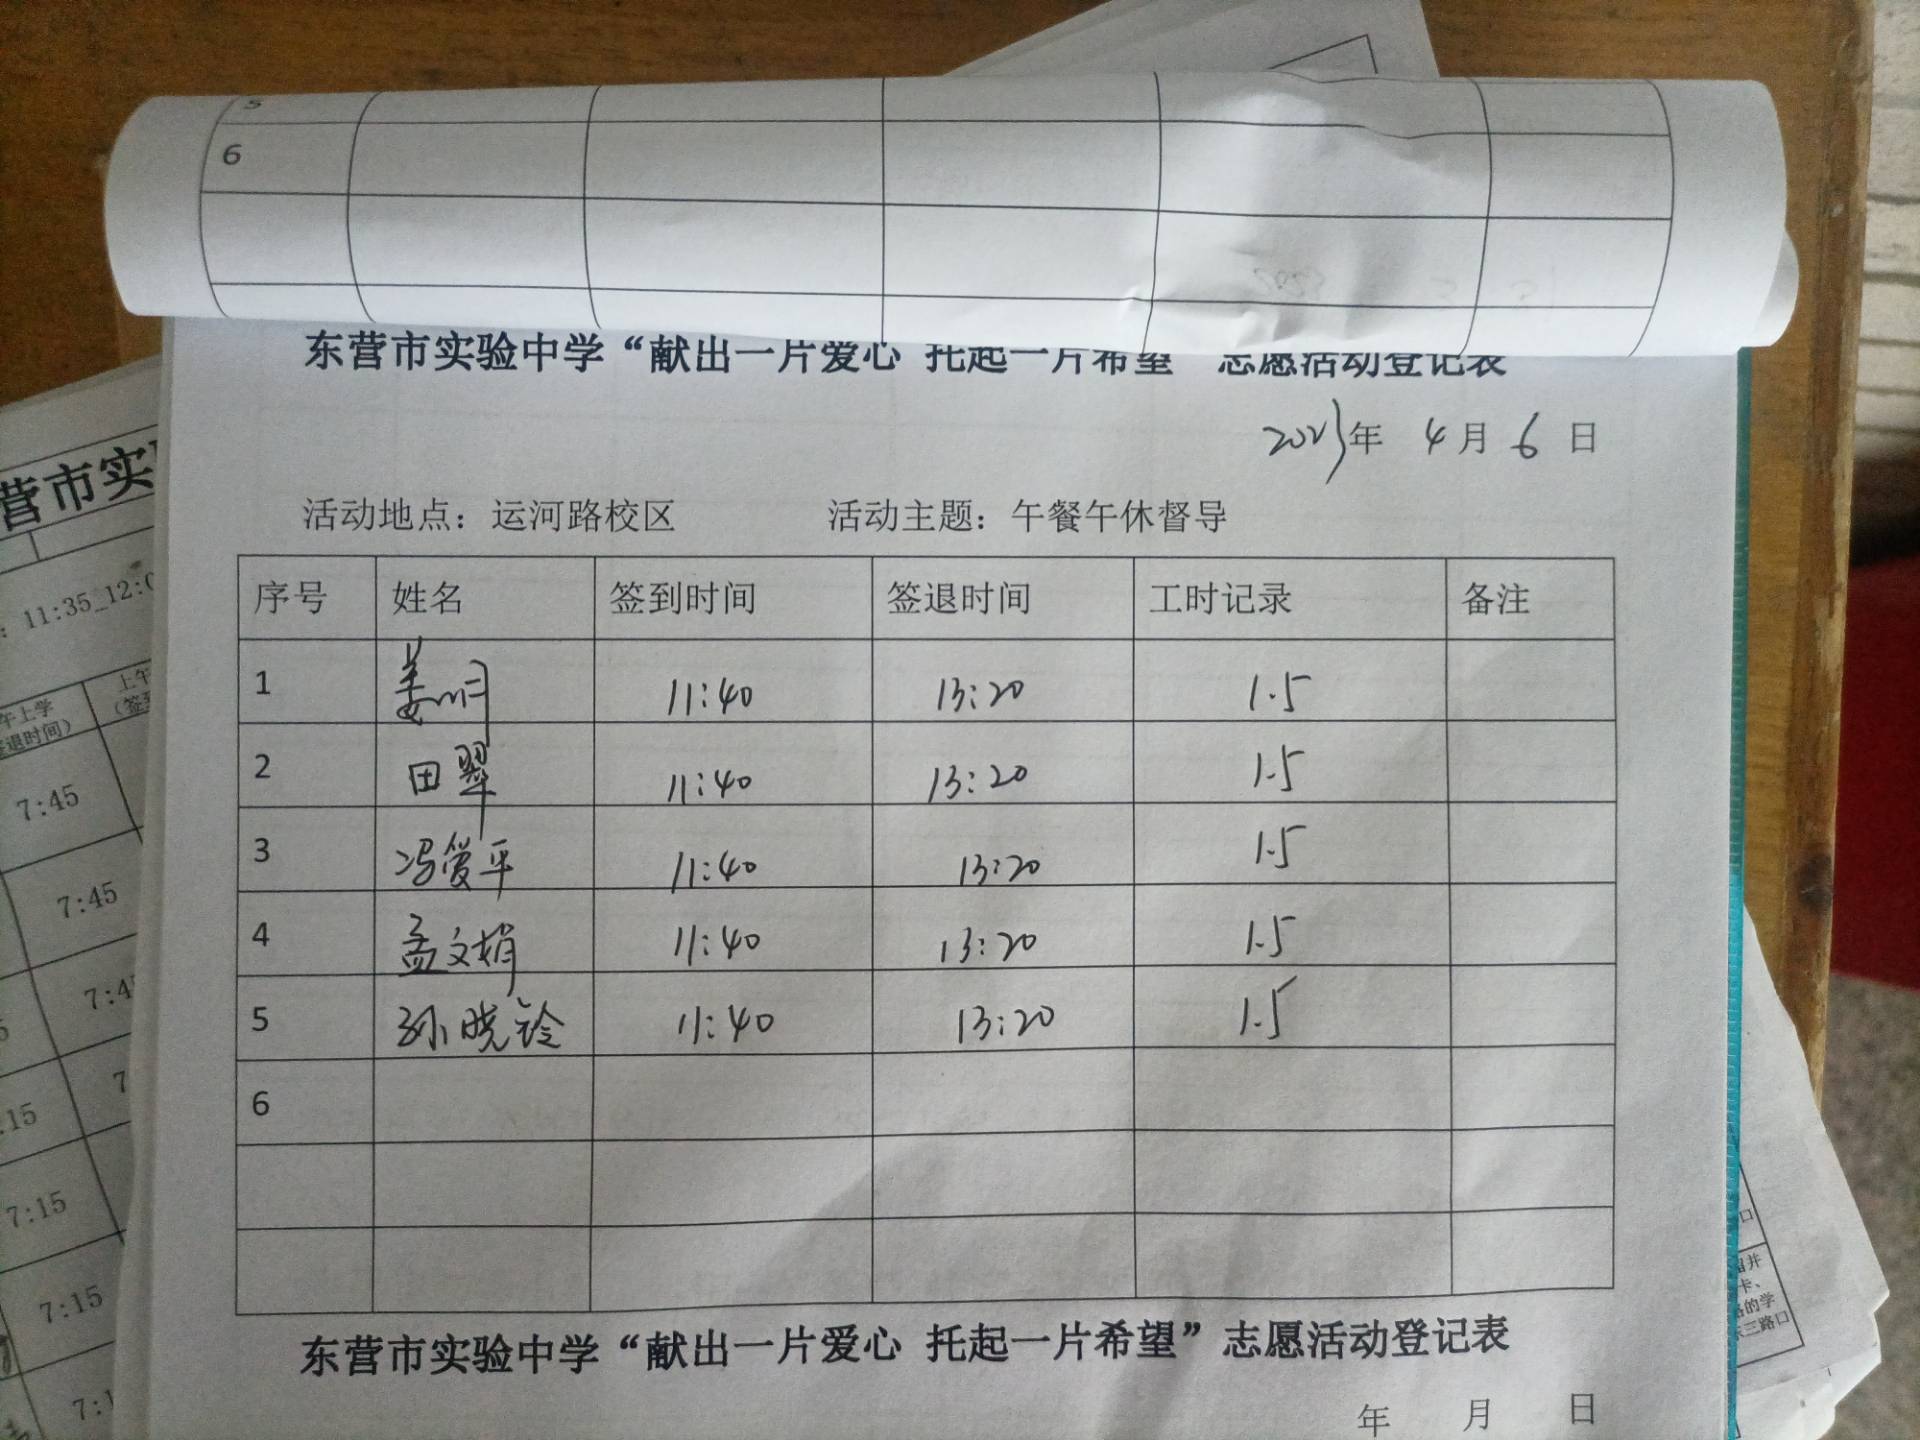 5
6
东营市实验中学“献出一片爱心 托起一片希望” 志愿活动登记表
2023年 4月 6日
活动地点：运河路校区 活动主题：午餐午休督导
序号 姓名 签到时间 签退时间 工时记录 备注
1 姜明 11:40 13:20 1.5
2 田翠 11:40 13:20 1.5
3 冯爱平 11:40 13:20 1.5
4 孟文娟 11:40 13:20 1.5
5 孙晓铃 11:40 13:20 1.5
6
东营市实验中学“献出一片爱心 托起一片希望”志愿活动登记表
年 月 日
营市实
11:35_12:0
午上学
退时间）
上午
7:45
7:45
7:4
15
7:15
7:15
的学
三路口